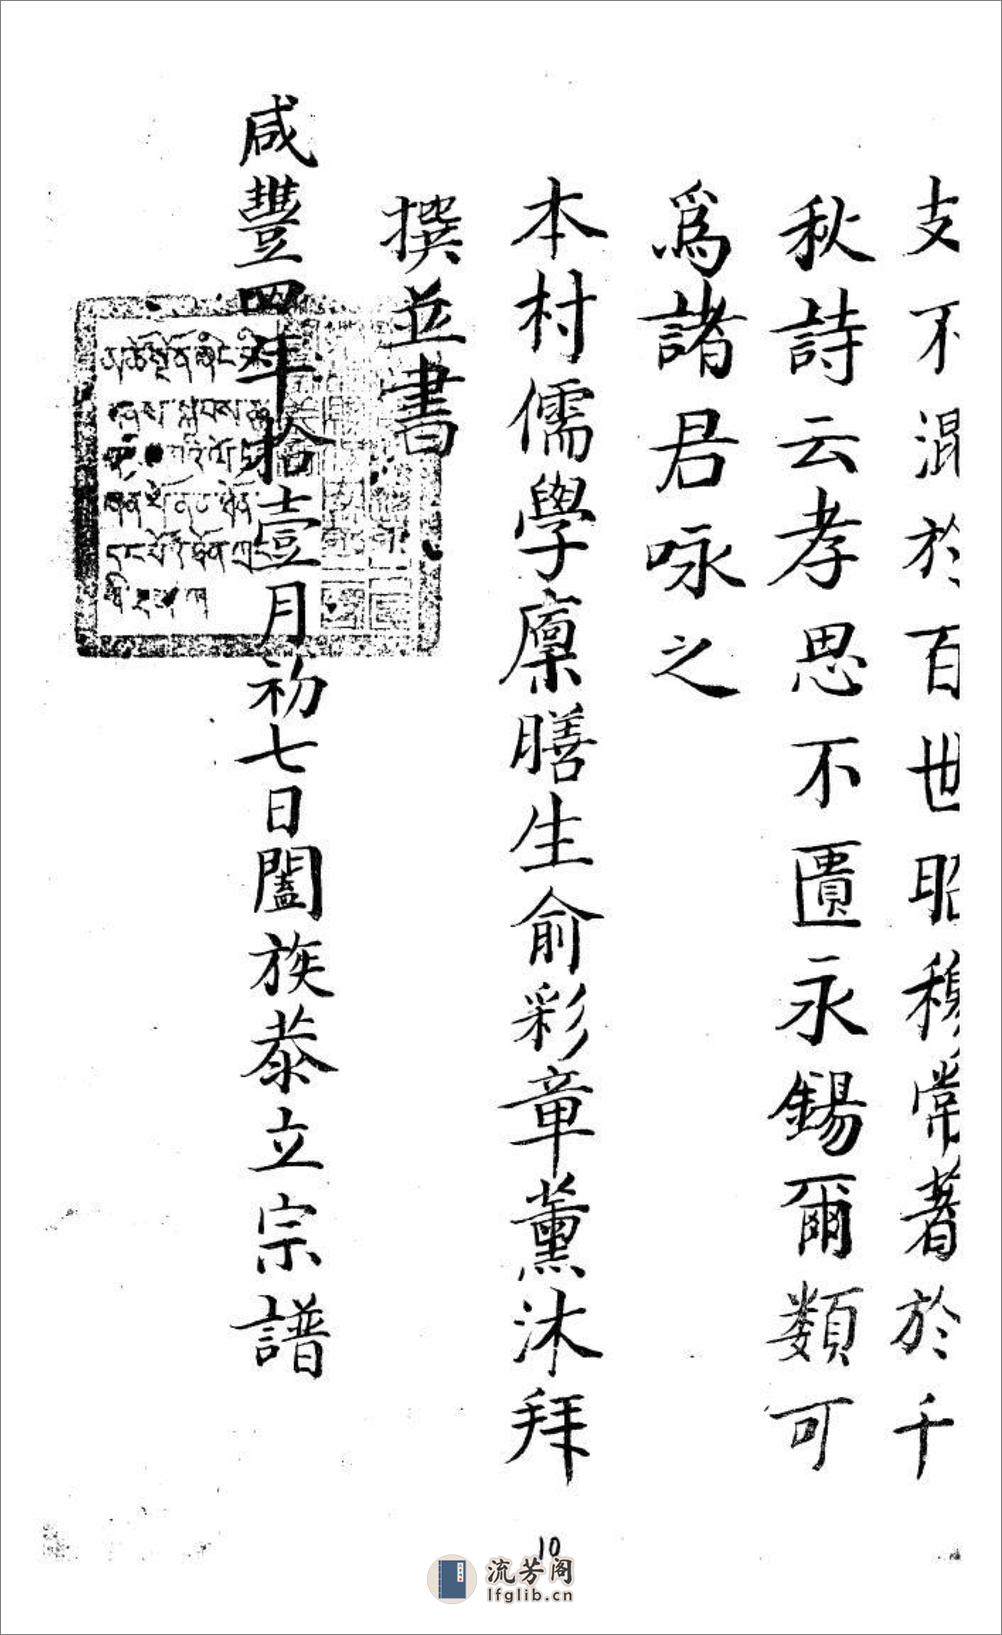 支不混於百世昭穆常著於千
秋詩云孝思不匱永錫爾類可
爲諸君咏之
本村儒學廩膳生俞彩章薰沐拜
撰並書
咸豐四年拾壹月初七日闔族恭立宗譜
10
流芳阁
lfglib.cn